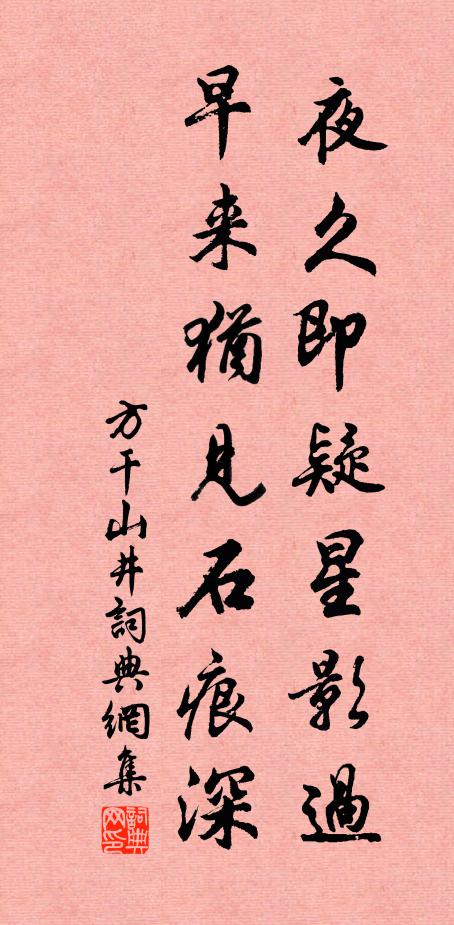 夜久即疑星影過
早来猶見石痕深
方干山井詞典網集
詞典网印